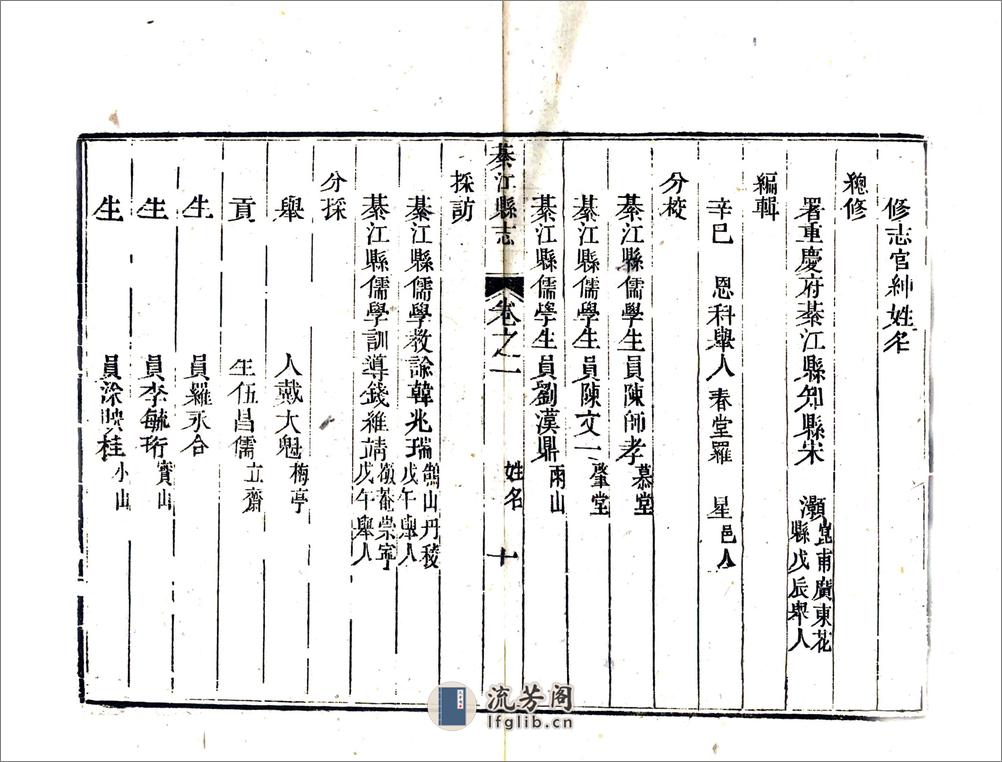 修志官紳姓名
總修
署重慶府綦江縣知縣宋 灝崑甫廣東花縣戊辰舉人
編輯
辛巳 恩科舉人春堂羅 星邑人
分校
綦江縣儒學生員陳師孝慕堂
綦江縣儒學生員陳文一肇堂
綦江縣儒學生員劉漢鼎雨山
綦江縣志 卷之一 姓名 十
採訪
綦江縣儒學教諭韓兆瑞鶴山丹稜戊午舉人
綦江縣儒學訓導錢維靖嶺菴崇寧戊午舉人
分採
舉 人戴大魁梅亭
貢 生伍昌儒立齋
生 員羅永合
生 員李毓珩寶山
生 員涂映桂小山
流芳阁
lfglib.cn